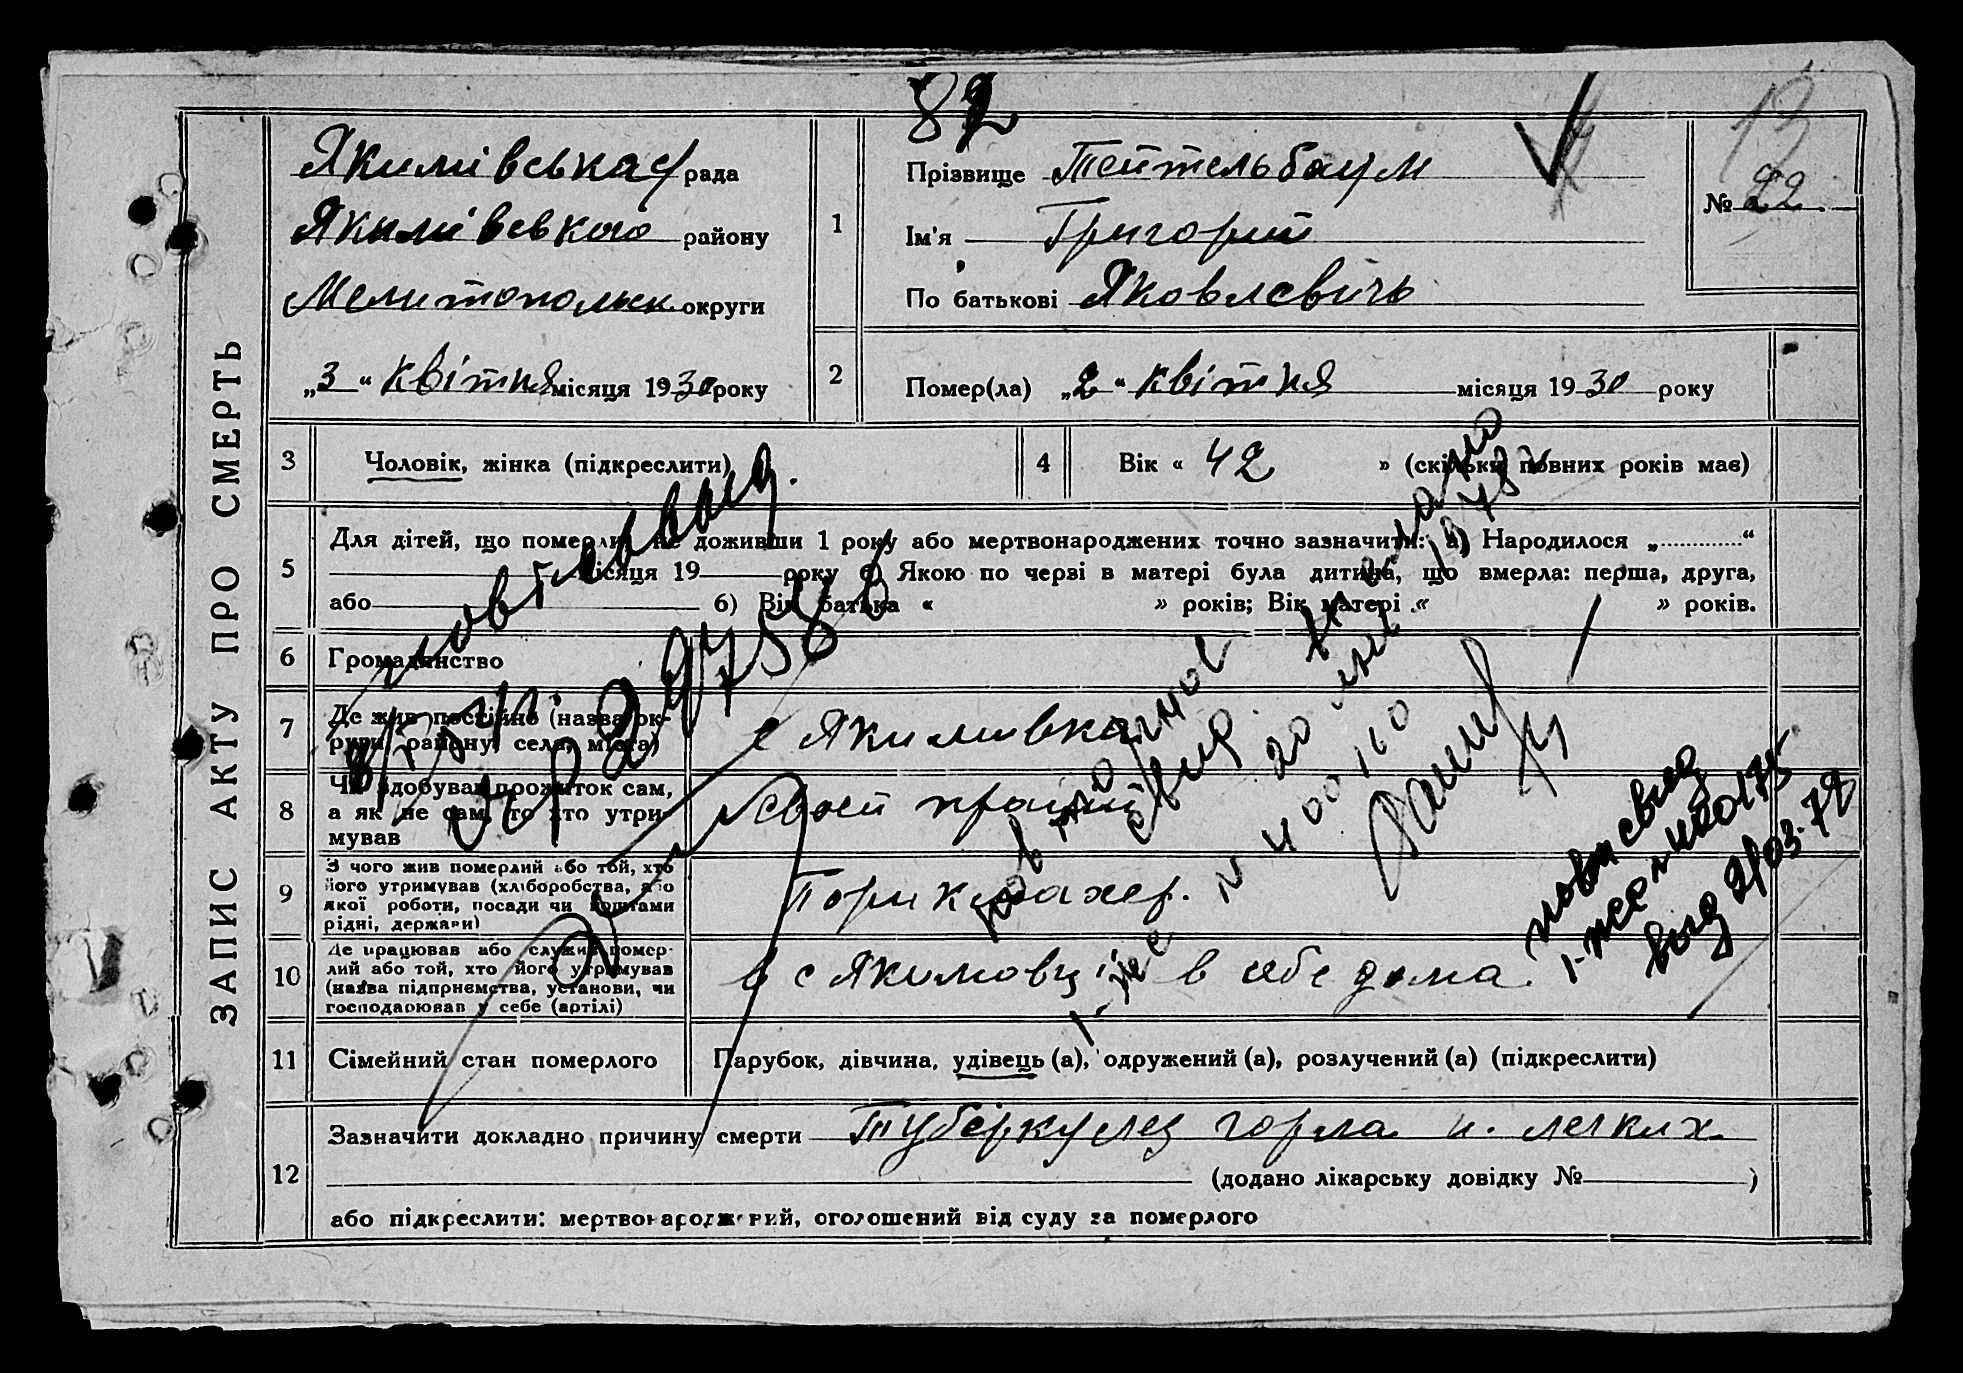 82
13
ЗАПИС АКТУ ПРО СМЕРТЬ
Якимівська с/рада
Якимівського району
Мелитопольск округи
„3“ квітня місяця 1930 року
1
Прізвище Тейтельбаум
Ім'я Григорий
По батькові Яковлевичь
№ 22
2
Помер(ла) „2“ квітня місяця 1930 року
3 Чоловік, жінка (підкреслити)
4 Вік « 42 » (скільки повних років має)
5
Для дітей, що померли, не доживши 1 року або мертвонароджених точно зазначити: а) Народилося „ “
місяця 19 року б) Якою по черзі в матері була дитина, що вмерла: перша, друга,
або б) Вік батька « » років; Вік матері « » років.
6 Громадянство
7
Де жив постійно (назва ок-
руги, району, села, міста)
с Якимивка
8
Чи здобував прожиток сам,
а як не сам, то хто утри-
мував
своей праций
9
З чого жив померлий або той, хто
його утримував (хліборобства, або
якої роботи, посади чи коштами
рідні, держави)
Порикмахер.
10
Де працював або служив помер-
лий або той, хто його утримував
(назва підприємства, установи, чи
господарював у себе (артілі)
в с Якимовці в себе дома.
11 Сімейний стан померлого
Парубок, дівчина, удівець (а), одружений (а), розлучений (а) (підкреслити)
12
Зазначити докладно причину смерти Туберкулез горла и легких
(додано лікарську довідку № )
або підкреслити: мертвонароджений, оголошений від суду за померлого
повторное
свид.
N 400110
повт свид
выд 2/03.78